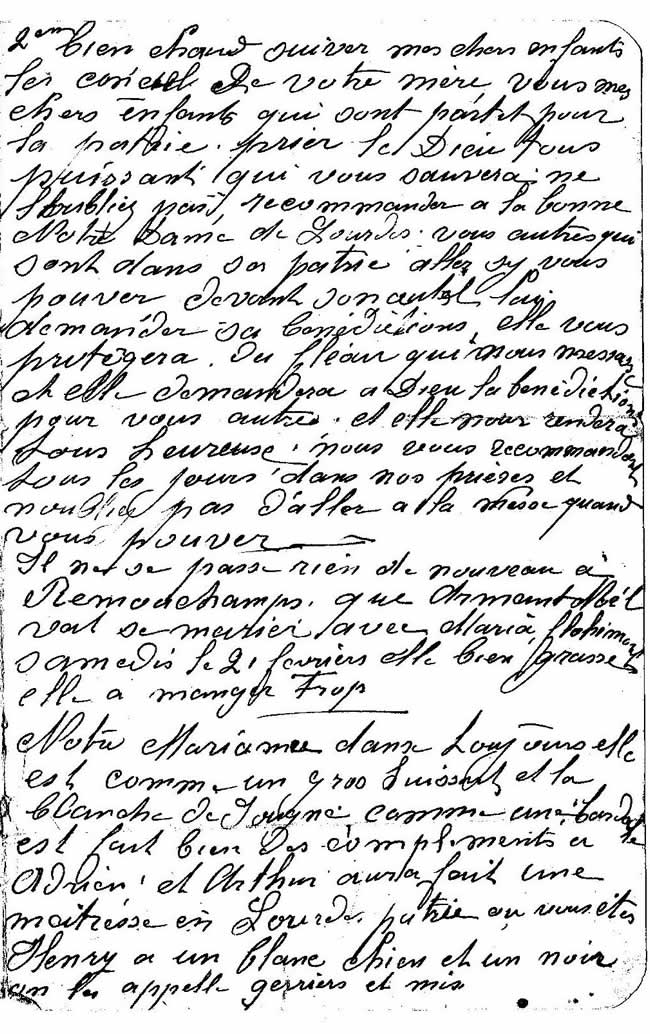 2em bien chaud suiver mes chers enfants
les conceil de votre mère, vous mes
chers enfants qui sont partet pour
la patrie. prier le Dieu tous
puissant qui vous sauvera ne
l'oubliez pas, recommander a la bonne
Notre Dame de Lourdes. vous autres qui
sont dans sa patrie aller sy vous
pouver devant son autel lui
demander sa bénédictions, elle vous
protègera. du fléau qui nous menace
et elle demandera a Dieu la bénédictions
pour vous autres. et elle nour rendera
tous heureuse. nous vous recommandont
tous les jours dans nos prières et
noublier pas d'aller a la messe quand
vous pouver
Il ne se passe rien de nouveau à
Remouchamps. que Armant Abél
vat se marier avec Maria
samedis le 21 fevriers elle bien grasse
elle a manger Trop
Notre Marianne danse toujours elle
est comme un gros et la
blanche de comme une
est fait bien des compliments a
Adrien. et Arthur aura fait une
maitresse en Lourde. patrie ou vous êtes
Henry a un blanc chien et un noir
on les appelle gerriers et mis